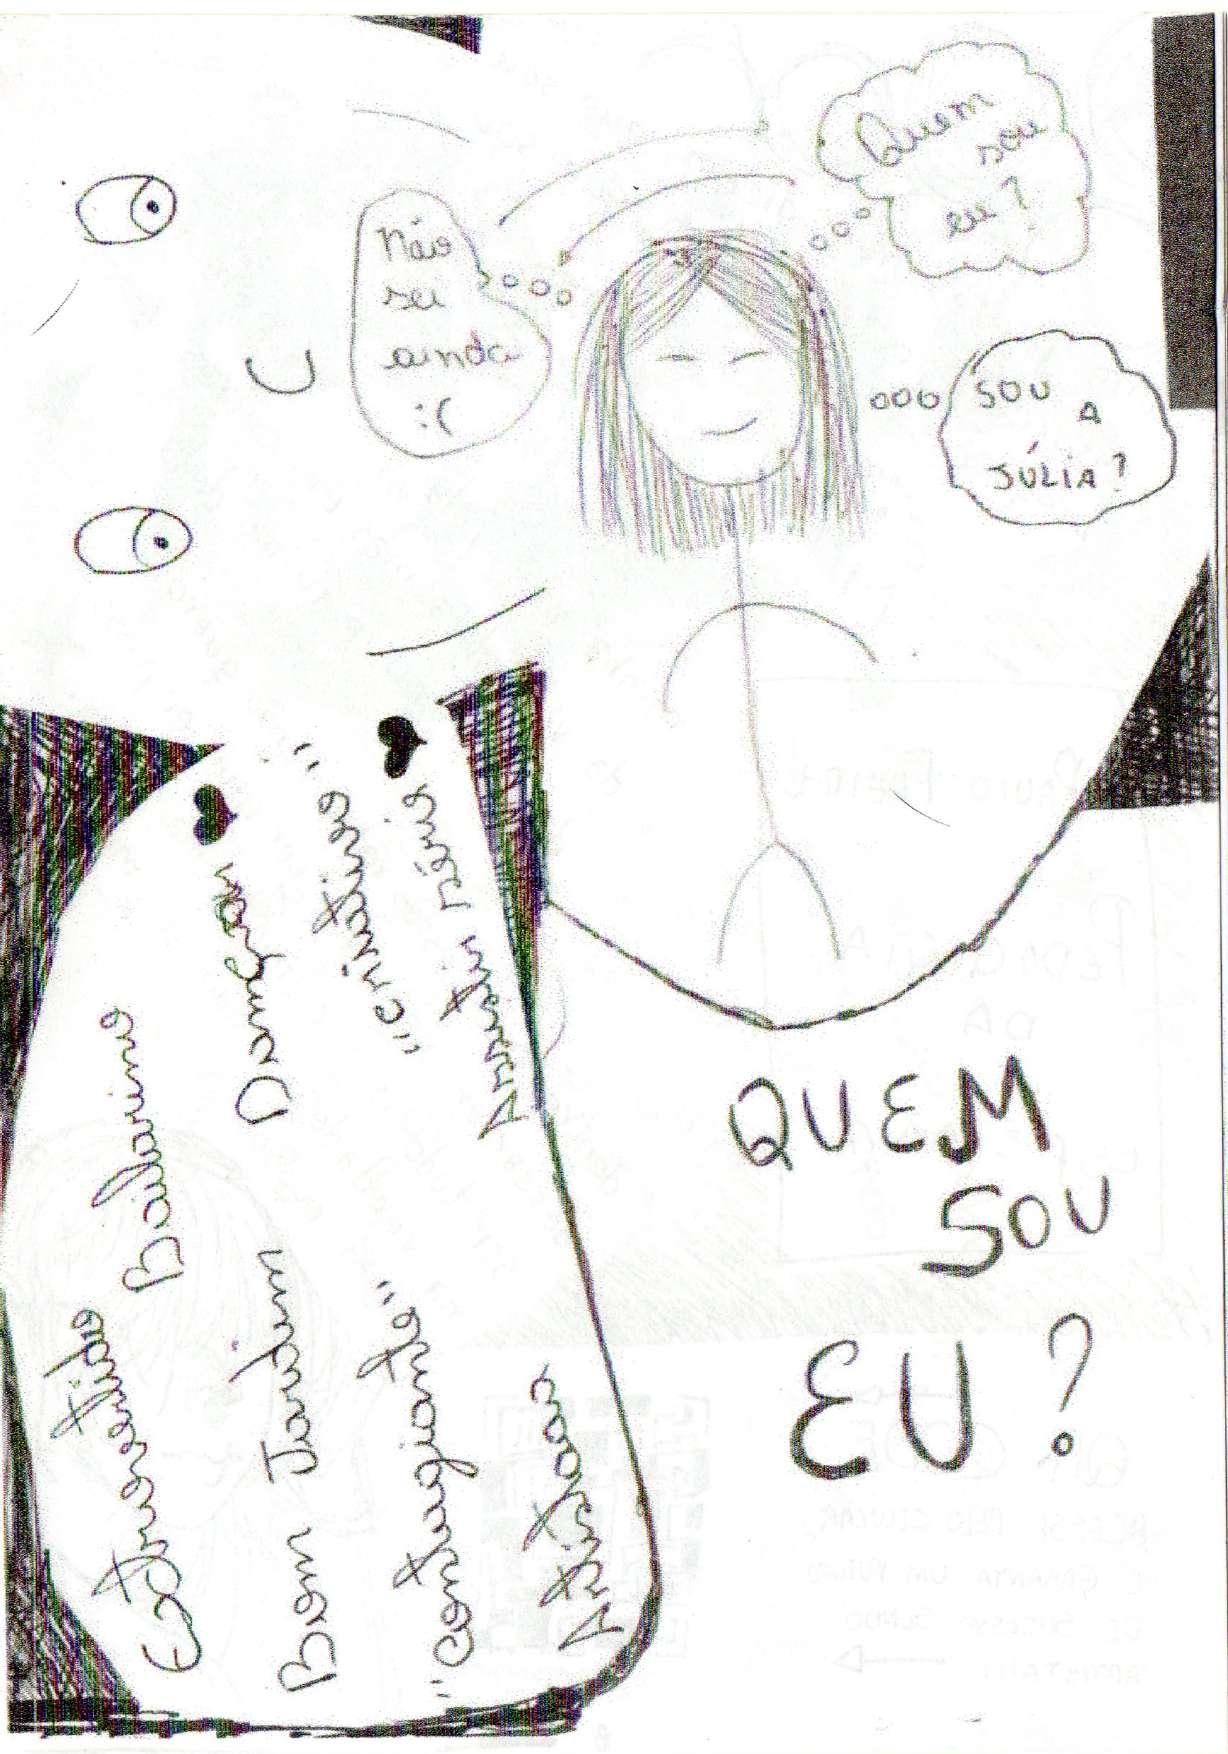 Quem
sou
eu?
Não
sei
ainda
:(
SOU A
JÚLIA?
QUEM
SOU
EU?
Extrovertido
Bailarino
Bom Jardim
"contagiante"
"criativo"
Artistaaa
sério